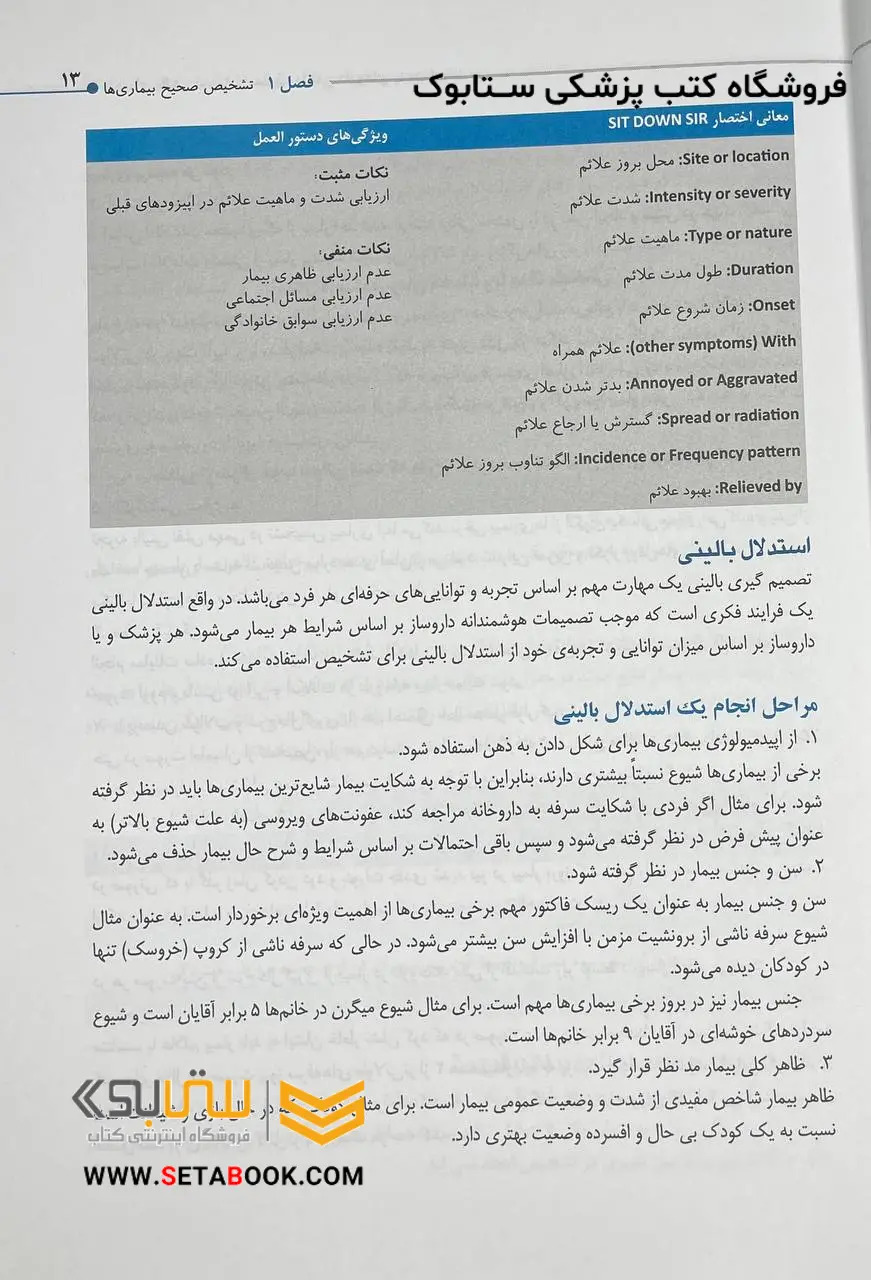 فروشگاه کتب پزشکی ستابوک
فصل ۱ تشخیص صحیح بیماری‌ها ۱۳
معانی اختصار SIT DOWN SIR
Site or location: محل بروز علائم
Intensity or severity: شدت علائم
Type or nature: ماهیت علائم
Duration: طول مدت علائم
Onset: زمان شروع علائم
With (other symptoms): علائم همراه
Annoyed or Aggravated: بدتر شدن علائم
Spread or radiation: گسترش یا ارجاع علائم
Incidence or Frequency pattern: الگو تناوب بروز علائم
Relieved by: بهبود علائم
ویژگی‌های دستور العمل
نکات مثبت:
ارزیابی شدت و ماهیت علائم در اپیزودهای قبلی
نکات منفی:
عدم ارزیابی ظاهری بیمار
عدم ارزیابی مسائل اجتماعی
عدم ارزیابی سوابق خانوادگی
استدلال بالینی
تصمیم گیری بالینی یک مهارت مهم بر اساس تجربه و توانایی‌های حرفه‌ای هر فرد می‌باشد. در واقع استدلال بالینی
یک فرایند فکری است که موجب تصمیمات هوشمندانه داروساز بر اساس شرایط هر بیمار می‌شود. هر پزشک و یا
داروساز بر اساس میزان توانایی و تجربه‌ی خود از استدلال بالینی برای تشخیص استفاده می‌کند.
مراحل انجام یک استدلال بالینی
۱. از اپیدمیولوژی بیماری‌ها برای شکل دادن به ذهن استفاده شود.
برخی از بیماری‌ها شیوع نسبتاً بیشتری دارند، بنابراین با توجه به شکایت بیمار شایع‌ترین بیماری‌ها باید در نظر گرفته
شود. برای مثال اگر فردی با شکایت سرفه به داروخانه مراجعه کند، عفونت‌های ویروسی (به علت شیوع بالاتر) به
عنوان پیش فرض در نظر گرفته می‌شود و سپس باقی احتمالات بر اساس شرایط و شرح حال بیمار حذف می‌شود.
۲. سن و جنس بیمار در نظر گرفته شود.
سن و جنس بیمار به عنوان یک ریسک فاکتور مهم برخی بیماری‌ها از اهمیت ویژه‌ای برخوردار است. به عنوان مثال
شیوع سرفه ناشی از برونشیت مزمن با افزایش سن بیشتر می‌شود. در حالی که سرفه ناشی از کروپ (خروسک) تنها
در کودکان دیده می‌شود.
جنس بیمار نیز در بروز برخی بیماری‌ها مهم است. برای مثال شیوع میگرن در خانم‌ها ۵ برابر آقایان است و شیوع
سردردهای خوشه‌ای در آقایان ۹ برابر خانم‌ها است.
۳. ظاهر کلی بیمار مد نظر قرار گیرد.
ظاهر بیمار شاخص مفیدی از شدت و وضعیت عمومی بیمار است. برای مثال در حال
نسبت به یک کودک بی حال و افسرده وضعیت بهتری دارد.
ستابوک
فروشگاه اینترنتی کتاب
WWW.SETABOOK.COM